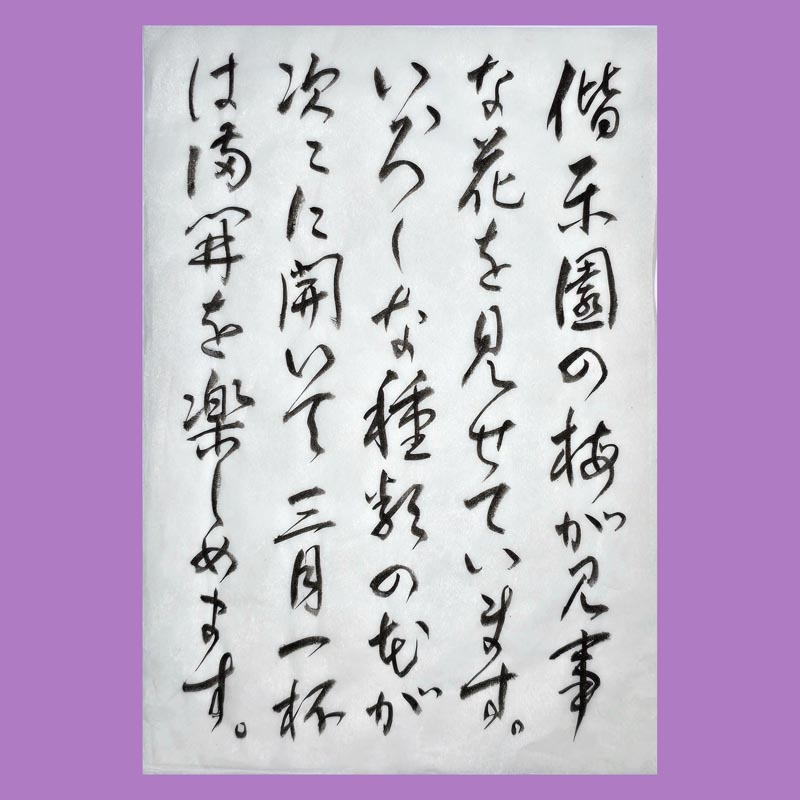 偕楽園の梅が見事
な花を見せています。
いろんな種類の花が
次々に開いて三月一杯
は満開を楽しめます。